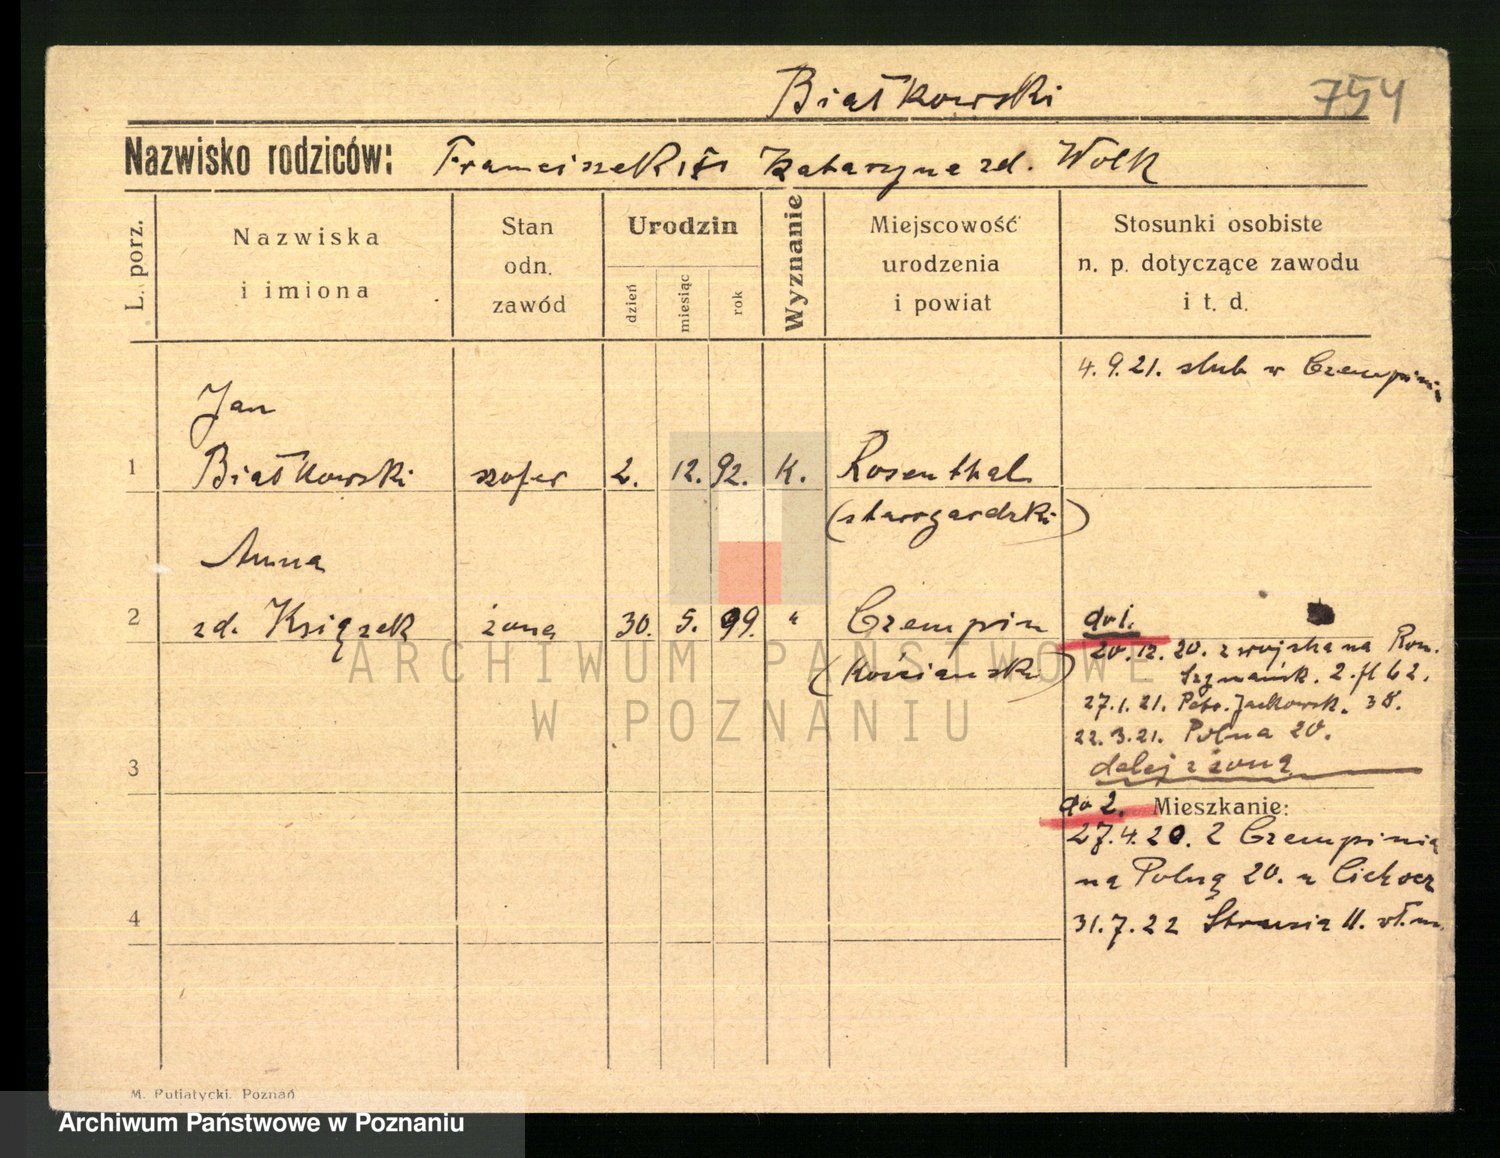 Białkowski 754
Nazwisko rodziców: Franciszek i Katarzyna zd. Wolk
L. porz.
Nazwiska
i imiona
Stan
odn.
zawód
Urodzin
dzień
miesiąc
rok
Wyznanie
Miejscowość
urodzenia
i powiat
Stosunki osobiste
n. p. dotyczące zawodu
i t. d.
4. 9. 21. slub w Czempiniu
Jan
1 Białkowski szofer 2. 12. 92. K. Rosenthal
(stargardzki)
Anna
2 zd. Książek żona 30. 5. 99. " Czempin
(kościański)
do 1.
20. 12. 20. z wojska na Rom.
Szymańsk. 2. 62.
27. 1. 21. Patr. Jackowsk. 38.
22. 3. 21. Polna 20.
3
dalej z żoną
do 2. Mieszkanie:
27. 4. 20. z Czempinia
na Polną 20. u
4
31. 7. 22 Strusia 11. wł. m.
M. Putiatycki. Poznań
ARCHIWUM PAŃSTWOWE
W POZNANIU
Archiwum Państwowe w Poznaniu